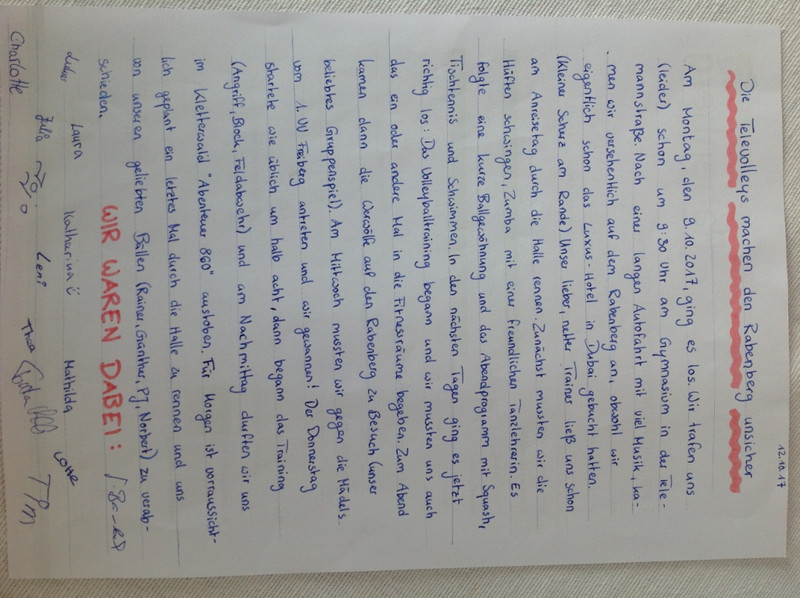 12.10.17
Die Televolleys machen den Rabenberg unsicher
Am Montag, den 9.10.2017, ging es los. Wir trafen uns
(leider) schon um 9:30 Uhr am Gymnasium in der Tele-
mannstraße. Nach einer langen Autofahrt mit viel Musik, ka-
men wir versehentlich auf dem Rabenberg an, obwohl wir
eigentlich schon das Luxus-Hotel in Dubai gebucht hatten.
(kleiner Scherz am Rande) Unser lieber, netter Trainer ließ uns schon
am Anreisetag durch die Halle rennen. Zunächst mussten wir die
Hüften schwingen, Zumba mit einer freundlichen Tanzlehrerin. Es
folgte eine kurze Ballgewöhnung und das Abendprogramm mit Squash,
Tischtennis und Schwimmen. In den nächsten Tagen ging es jetzt
richtig los: Das Volleyballtraining begann und wir mussten uns auch
das ein oder andere Mal in die Fitnessräume begeben. Zum Abend
kamen dann die Werwölfe auf den Rabenberg zu Besuch (unser
beliebtes Gruppenspiel). Am Mittwoch mussten wir gegen die Mädels
vom 1. VV Freiberg antreten und wir gewannen! Der Donnerstag
startete wie üblich um halb acht, dann begann das Training
(Angriff, Block, Feldabwehr) und am Nachmittag durften wir uns
im Kletterwald "Abenteuer 860" austoben. Für Morgen ist vorraussicht-
lich geplant ein letztes Mal durch die Halle zu rennen und uns
von unseren geliebten Bällen (Rainer, Günther, PJ, Norbert) zu verab-
schieden.
WIR WAREN DABEI:
Laura Katharina Mathilda Lotte
Charlotte Julia Leni Thea Tim